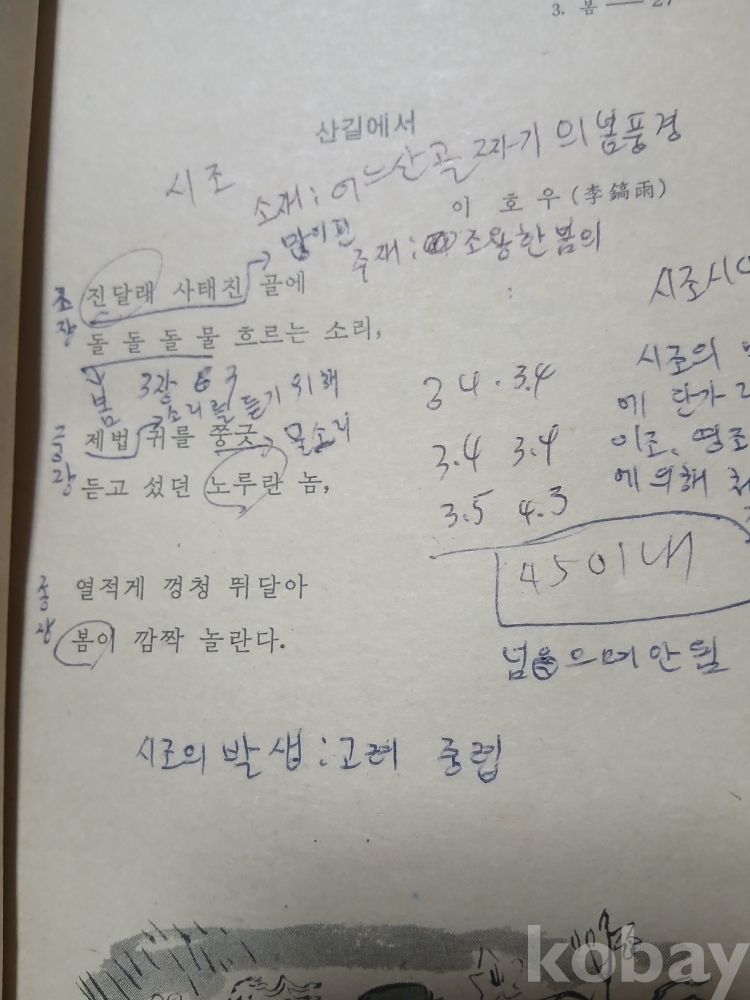 3. 봄 — 27
산길에서
시조
소재: 어느 산골짜기의 봄풍경
이 호 우 (李鎬雨)
많이 핀
주제: 조왕한 봄의
초장
진달래 사태진 골에
돌 돌 돌 물 흐르는 소리,
봄 3장 6
소리를 듣기 위해
중장
제법 귀를 쫑긋 물소리
듣고 섰던 노루란 놈,
종장
열적게 껑청 뛰달아
봄이 깜짝 놀란다.
시조의 발생: 고려 중렵
시조시
시조의
에 단가
이조, 영조
에 의해
3 4 · 3.4
3.4 3.4
3.5 4.3
45이내
넘으며 안됨
kobay